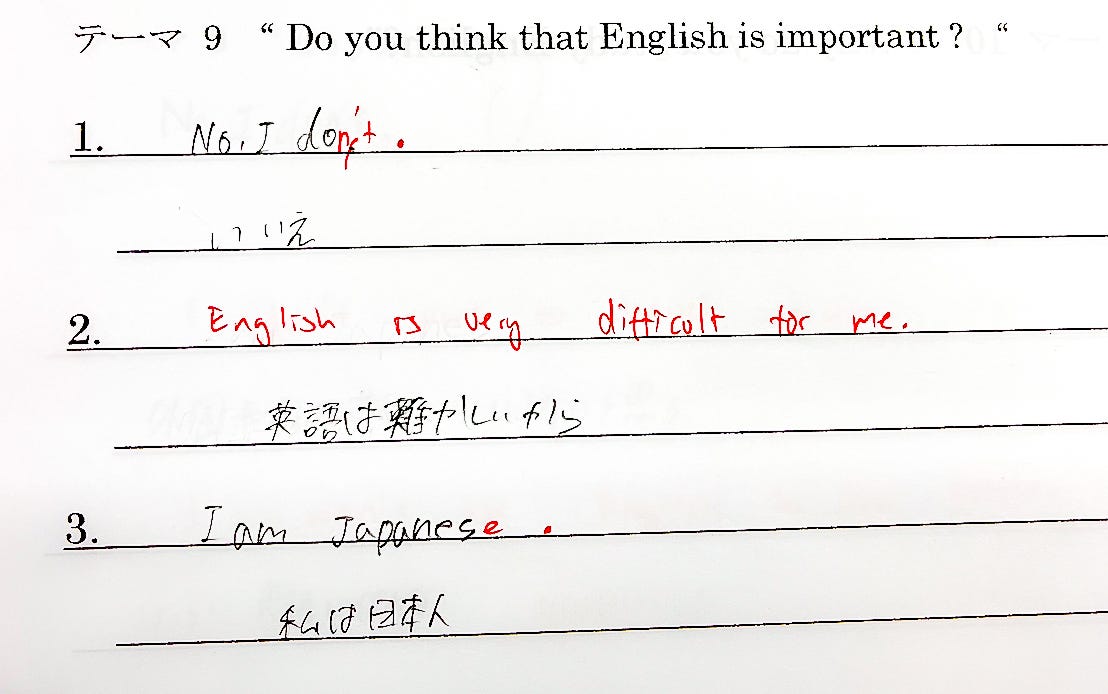 テーマ 9 “ Do you think that English is important ? “
1. No, I don't .
いいえ
2. English is very difficult for me.
英語は難かしいから
3. I am Japanese .
私は日本人